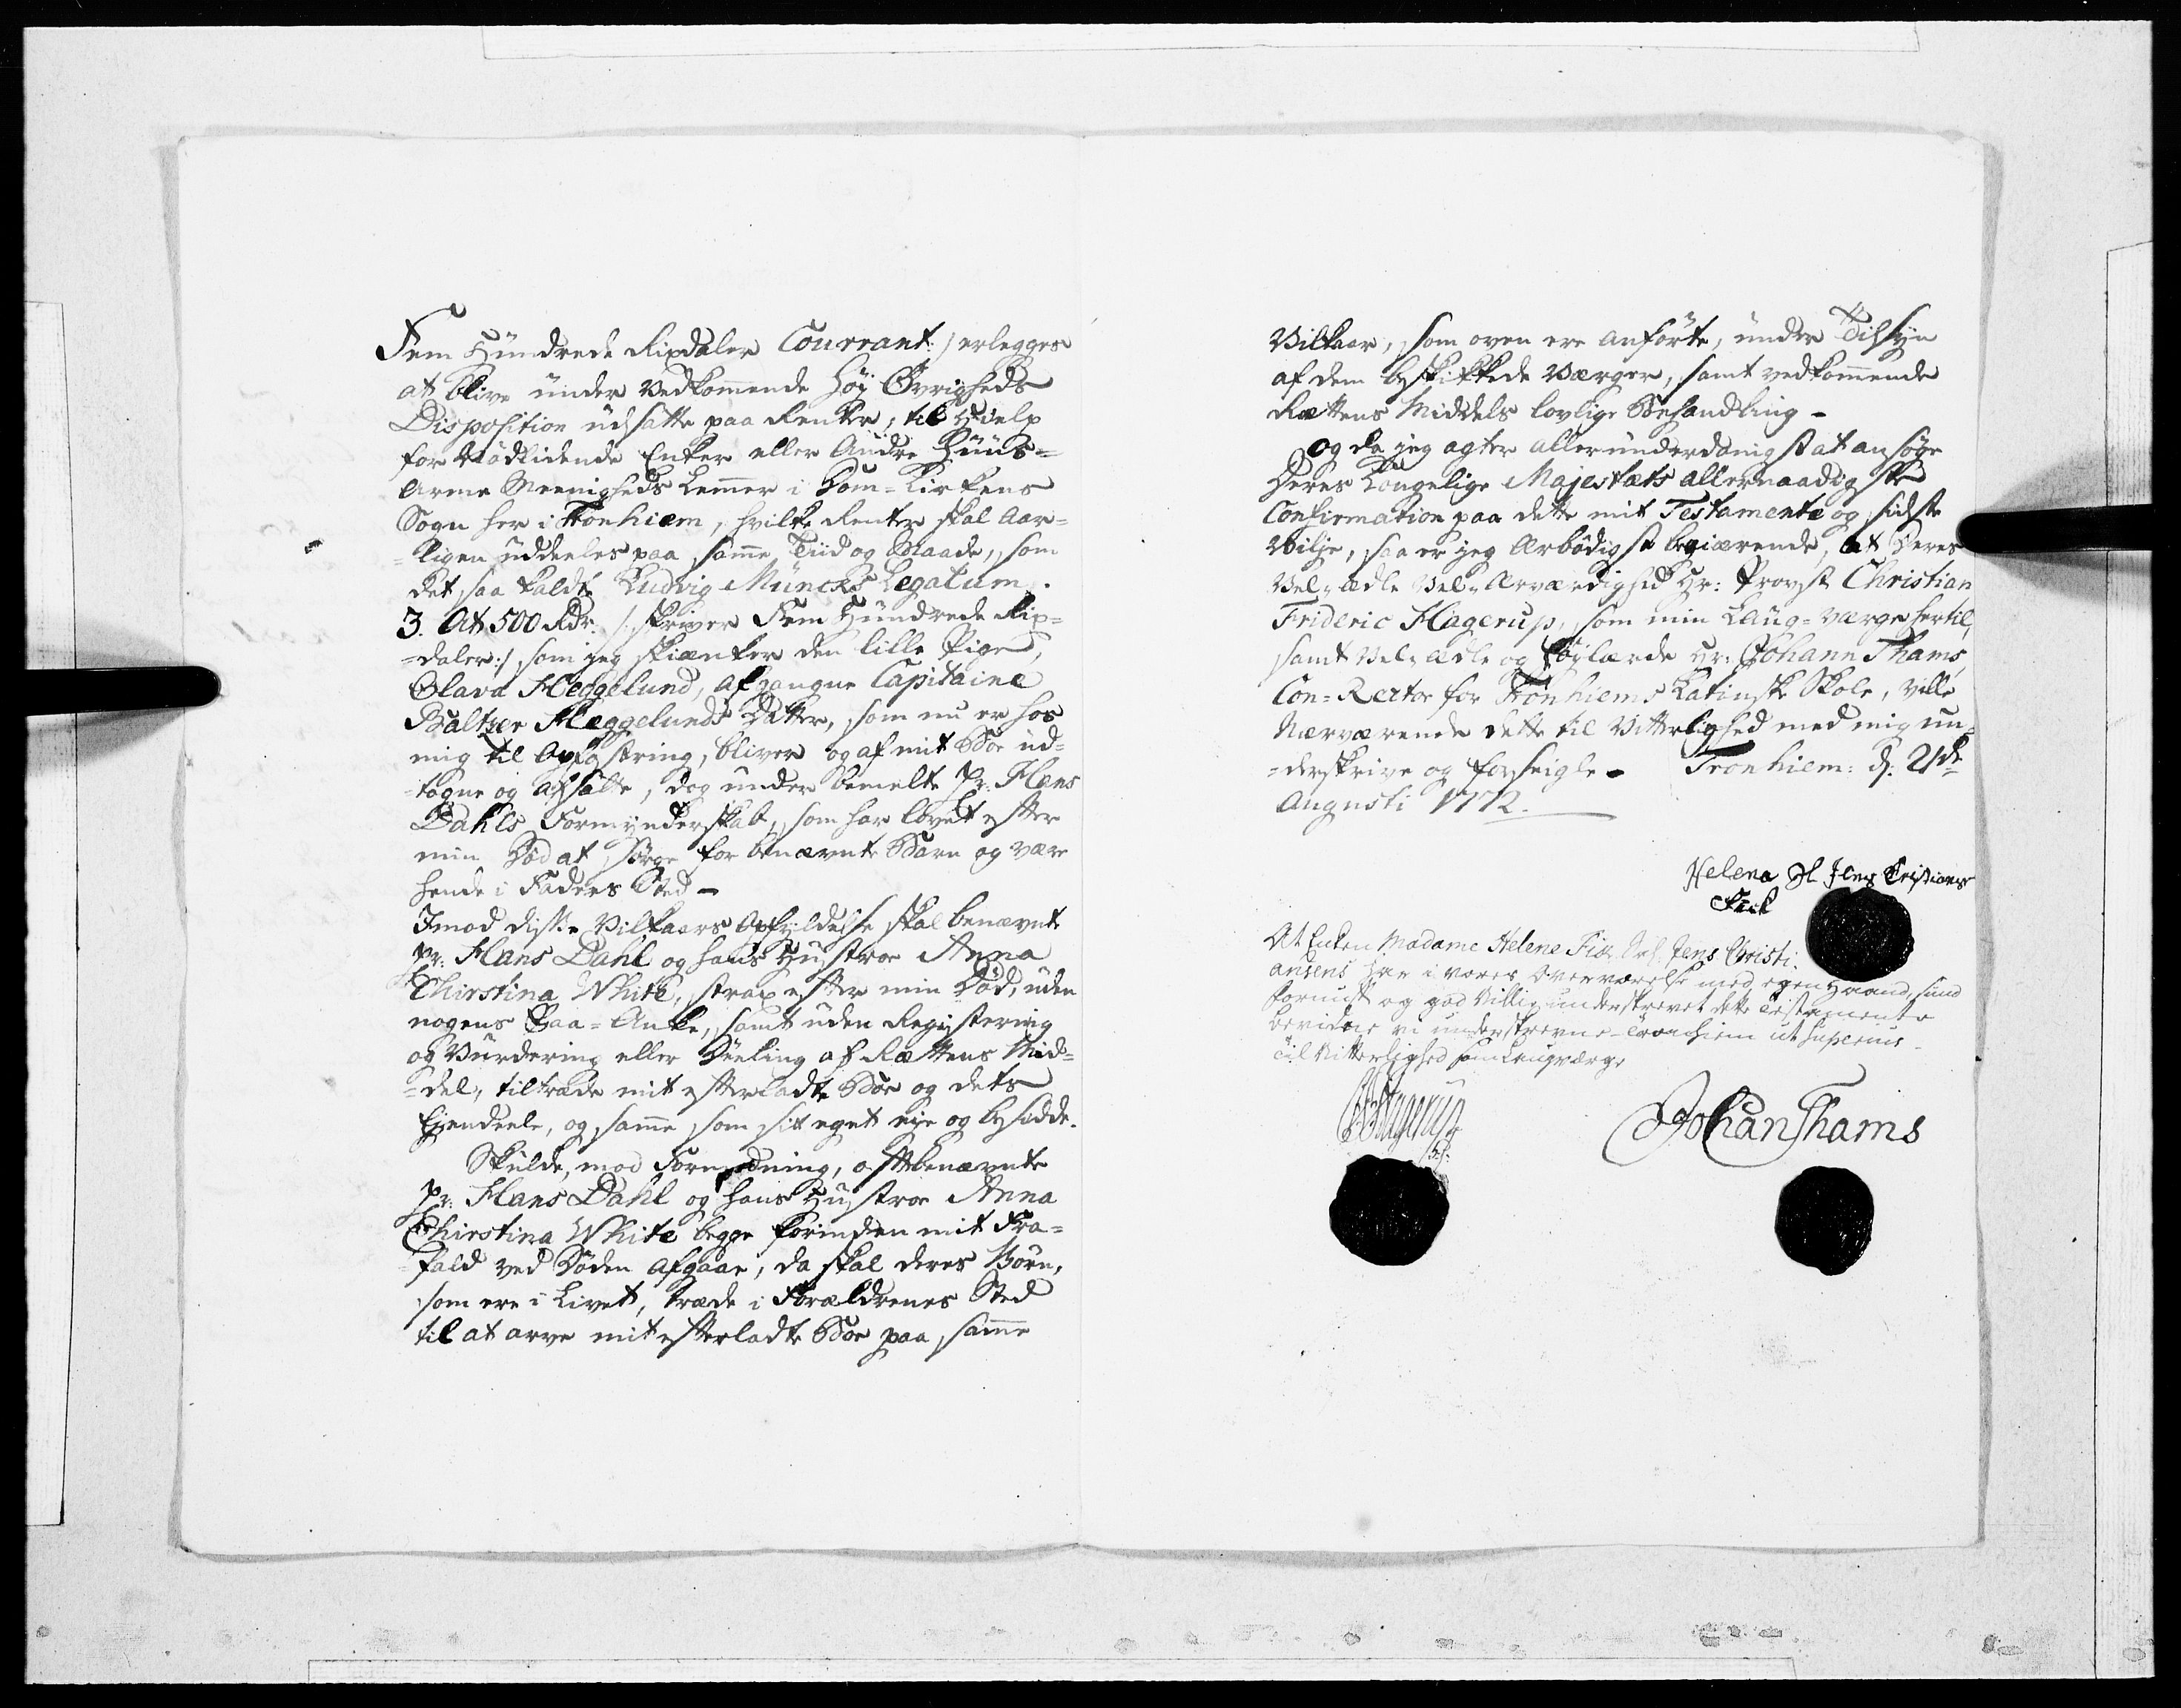 Fem Hündrede Rixdaler Courrant:/ erlegges
at blive ünder Vedkommende Høy Øvrigheds
Disposition üdsatte paa Renter, til Hielp
for Nødlidende Enker eller Andre Hüüs=
Arme Meenigheds Lemmer i Dom=Kirkens
Sogn her i Tronhiem, hvilke Renter skal Aar=
=ligen üddeeles paa samme Tiid og Maade, som
det saa kaldte Ludvig Müncks Legatum.
3. At 500 Rdr. /: skriver Fem Hündrede Rix=
=daler:/ som jeg skiænker den lille Pige,
Olava Heggelund, afgangne Capitaine
Baltzer Heggelunds Datter, som nu er hos
mig til Opfostring, bliver og af mit Boe üd=
=tagne og afsatte, dog under bemelte Hr: Hans
Dahls Formynderskab, som har lovet efter
min Død at sørge for benævnte Barn og være
hende i Faders Sted -
Imod disse Vilkaars Opfyldelse skal benævnte
Hr: Hans Dahl og hans Hustroe Anna
Chirstina White, strax efter min Død, uden
nogens Paa=Anke, samt uden Registering
og Vurdering eller Deeling af Rættens Mid=
=del, tiltræde mit efterladte Boe og dets
Ejendeele, og samme som sit eget eje og besidde.
Skulde, mod Formodning, oftbenævnte
Hr: Hans Dahl og hans Hustroe Anna
Chirstina White begge forinden mit Fra=
=fald ved Døden afgaae, da skal deres Børn,
som ere i Livet, træde i Forældrenes Sted
til at arve mit efterladte Boe paa samme
Vilkaar, som oven ere anførte, ünder Tilsyn
af dem beskikkede Værger, samt vedkommende
Rættens Middels lovlige Behandling -
Og da jeg agter allerunderdanigst at ansøge
Deres Kongelige Majestæts allernaadigste
Confirmation paa dette mit Testamente og sidste
Vilje, saa er jeg Ærbødigst begiærende, at Deres
Vel=ædle Vel=Ærværdighed Hr: Provst Christian
Frideric Hagerup, som min Laug=værge hertil,
samt Vel=ædle og Høylærde Hr: Johann Thams,
Con=Rector for Tronhiems Latinske Skole, ville
Nærværende dette til Vitterlighed med mig un=
=derskrive og forseigle - Tronhiem: d: 21de
Augusti 1772.
Helena Sl Jens Cristians
Fick
At Enken Madame Helene Fix Sal. Jens Christi-
ansens har i vores Overværelse med egen Haand, sund
Fornuft og god Villie underskrevet dette Testamente
bevidne vi underskrevne Tronhiem ut supra
Til Vitterlighed som Laugværge
CFHagerup
Johan Thams